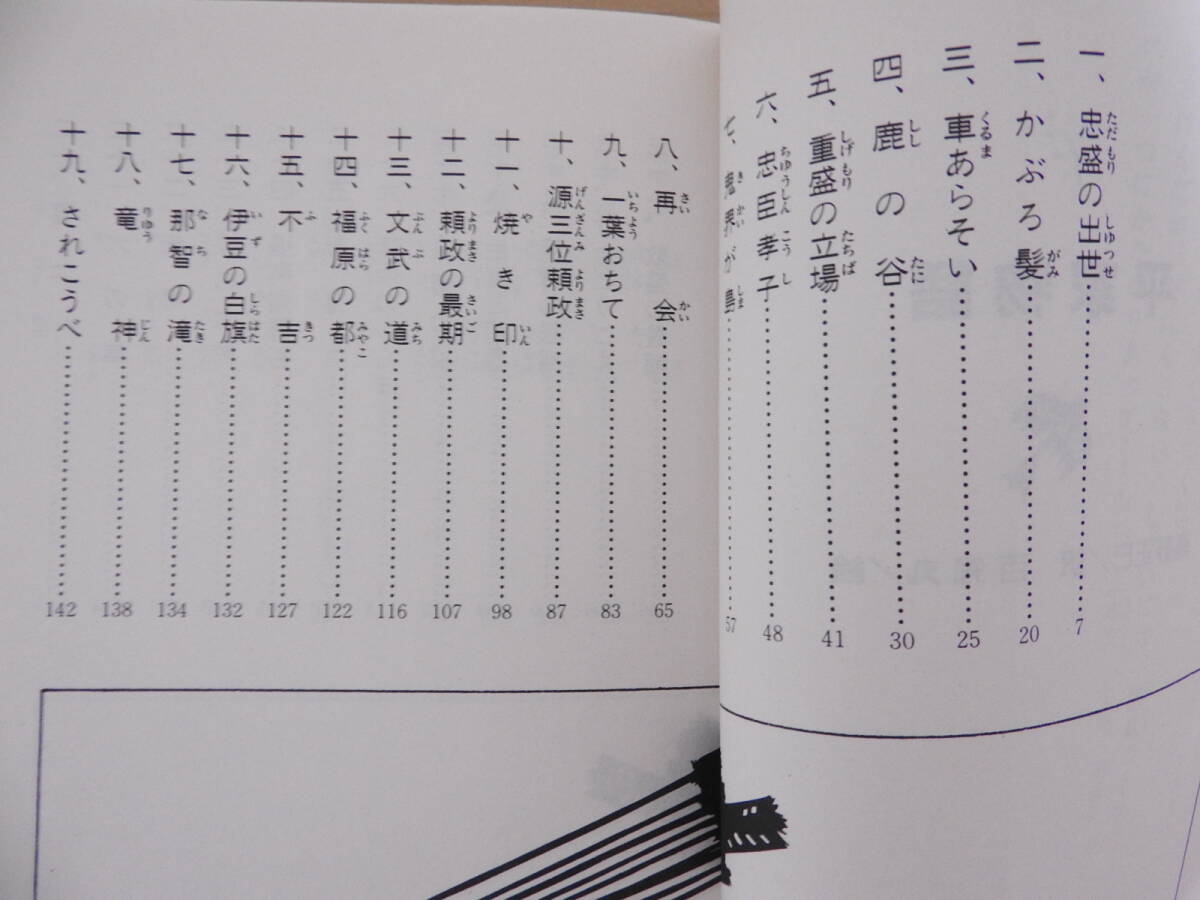 一、忠盛の出世……7
二、かぶろ髪……20
三、車あらそい……25
四、鹿の谷……30
五、重盛の立場……41
六、忠臣孝子……48
七、鬼界が島……57
八、再会……65
九、一葉おちて……83
十、源三位頼政……87
十一、焼き印……98
十二、頼政の最期……107
十三、文武の道……116
十四、福原の都……122
十五、不吉……127
十六、伊豆の白旗……132
十七、那智の滝……134
十八、竜神……138
十九、されこうべ……142